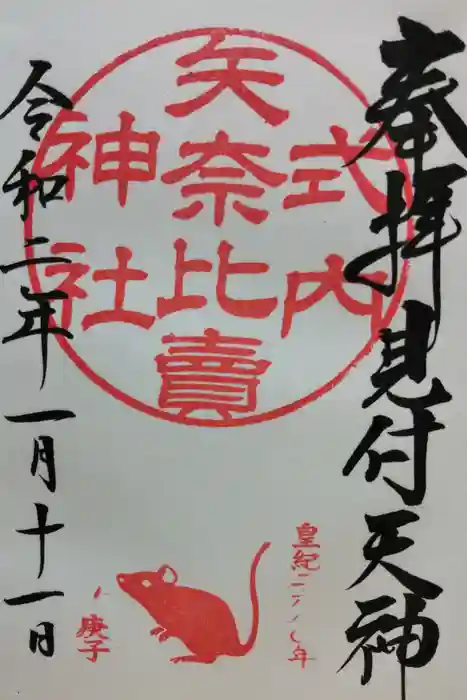 奉拝見付天神
式内
矢奈比賣
神社
令和二年一月十一日
皇紀二六八〇年
庚子